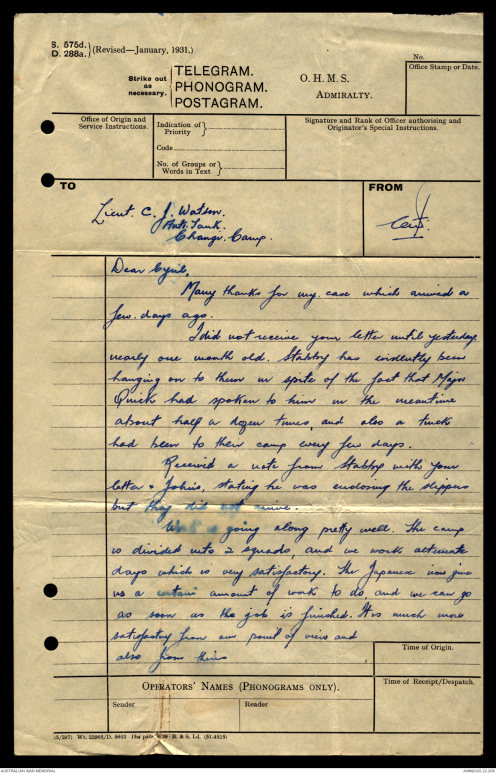 S. 575d.
D. 288a. } (Revised—January, 1931.)
Strike out
as
necessary.
TELEGRAM.
PHONOGRAM.
POSTAGRAM.
O. H. M. S.
ADMIRALTY.
No.
Office Stamp or Date.
Office of Origin and
Service Instructions.
Indication of
Priority
Code
No. of Groups or
Words in Text
Signature and Rank of Officer authorising and
Originator's Special Instructions.
TO
Lieut. C. J. Watson.
Anti. Tank.
Changi. Camp.
FROM
Dear Cyril,
Many thanks for my case which arrived a
few days ago.
I did not receive your letter until yesterday
nearly one month old. Stabby has evidently been
hanging on to them in spite of the fact that Major
Quick had spoken to him in the meantime
about half a dozen times, and also a truck
had been to their camp every few days.
Received a note from Stabby with your
letter & John's, stating he was enclosing the slippers
but they did not arrive.
Work is going along pretty well. The camp
is divided into 2 squads, and we work alternate
days which is very satisfactory. The Japanese now give
us a certain amount of work to do, and we can go
as soon as the job is finished. It is much more
satisfactory from our point of view and
also from theirs
Time of Origin.
OPERATORS' NAMES (PHONOGRAMS ONLY).
Sender
Reader
Time of Receipt/Despatch.
(5/297) Wt. 22965/D. 5602 B. & S. Ld. (51.4525)
AUSTRALIAN WAR MEMORIAL